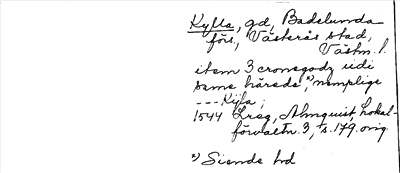 Kylla, gd, Badelunda
förs, Västerås stad,
Västm. l.
item 3 cronegodz udi
same härede,*) nemplige
--- Kijla;
1544 Lreg, Almquist, Lokal-
förvaltn. 3, s. 179. orig
*) Siende hd